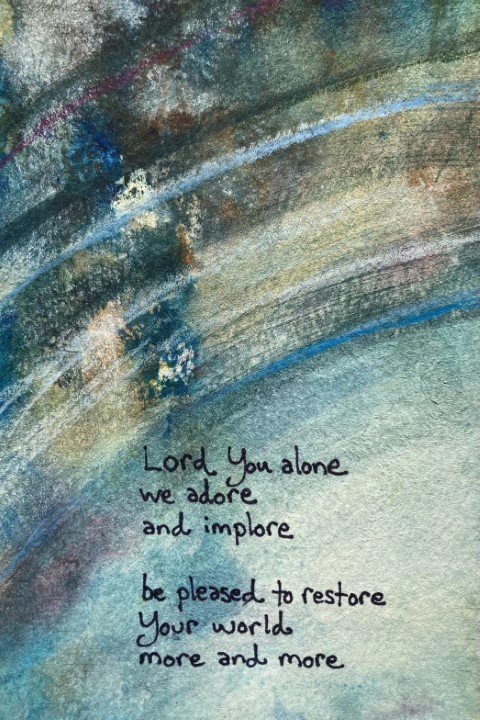 Lord You alone
we adore
and implore
be pleased to restore
Your world
more and more